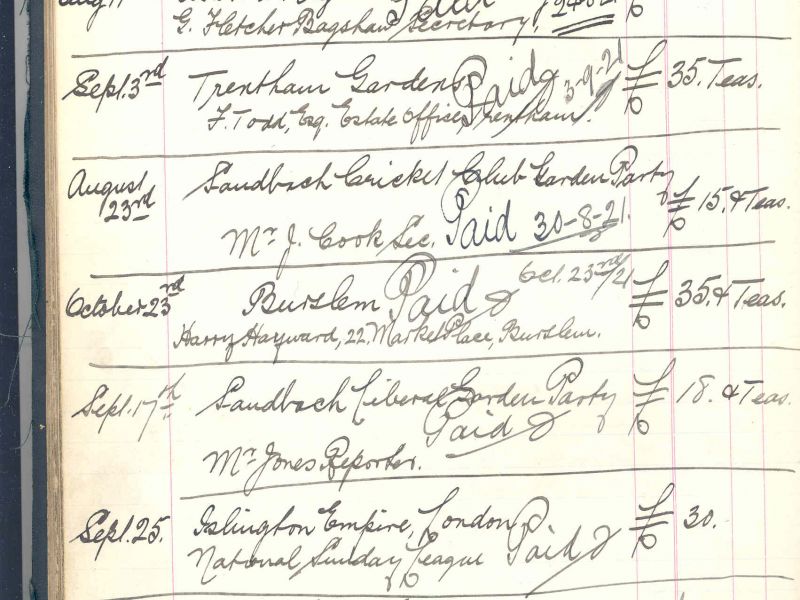 G. Fletcher Bagshaw Secretary.
Sept. 3rd Trentham Gardens Paid 3-9-21 £ 35. Teas.
F. Todd, Esq. Estate Office, Trentham.
August 23rd Sandbach Cricket Club Garden Party £ 15. & Teas.
Mr J. Cook Sec. Paid 30-8-21.
October 23rd Burslem Paid Oct. 23rd/21 £ 35. & Teas.
Harry Hayward, 22, Market Place, Burslem.
Sept. 17th Sandbach Liberal Garden Party £ 18. & Teas.
Paid
Mr Jones Reporter.
Sept. 25. Islington Empire, London £ 30.
National Sunday League Paid